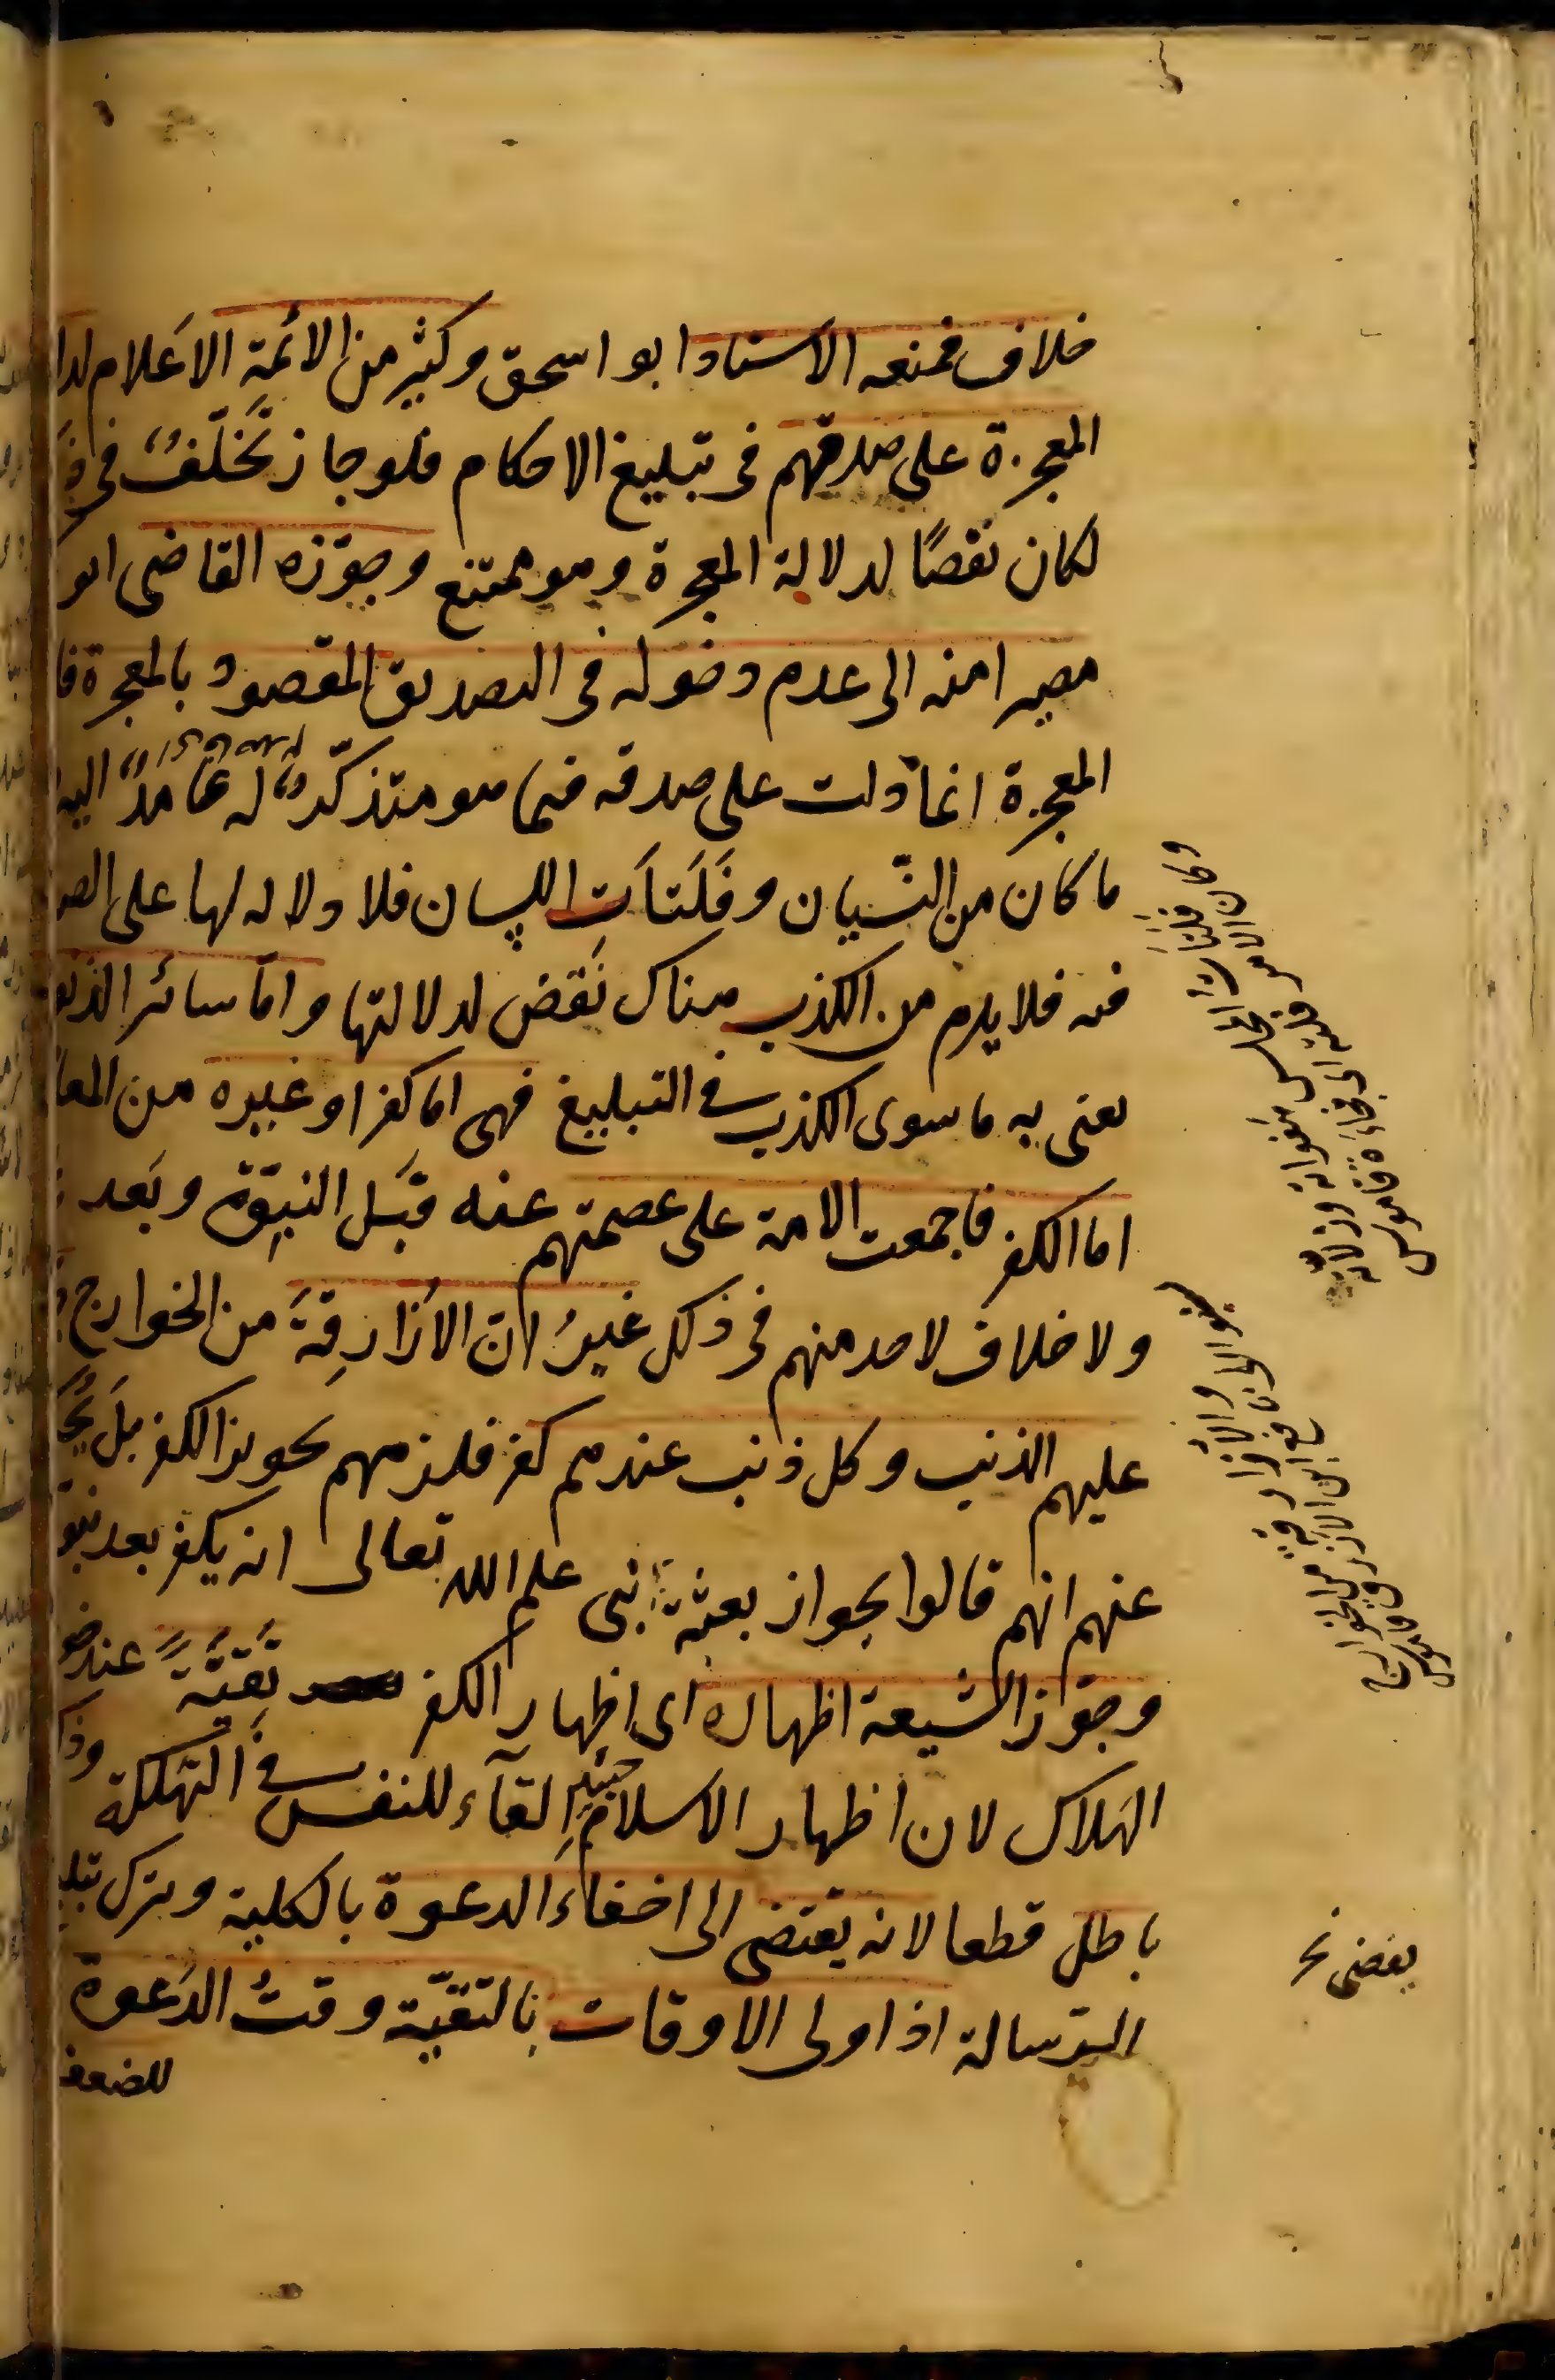 خلاف فمنعه الاستاد ابو اسحق وكثير من الائمة الاعلام لدا
المعجزة على صدقهم فى تبليغ الاحكام فلو جاز تخلّف فى
لكان نقضًا لدلالة المعجزة وهو ممتنع وجوّزه القاضى ابو
مصيرا منه الى عدم دخوله فى التصديق المقصود بالمعجزة فا
المعجزة انما دلت على صدقه فيما هو متذكّر له عامد اليه
ما كان من النّسيان وفَلَتَات اللسان فلا دلالة لها على الصد
فيه فلا يلزم من الكذب هناك نَقض لدلالتها واما سائر الذنو
يعنى به ما سوى الكذب فى التبليغ فهى اما كفر او غيره من المعا
اما الكفر فاجمعت الامة على عصمتهم عنه قبَل النبوّة وبَعد
ولا خلاف لاحد منهم فى ذلك غيرُ انّ الأزارِقةَ من الخوارج
عليهم الذنب وكل ذنب عندهم كفر فلزمهم تجويز الكفر بل
عنهم انهم قالوا بجواز بعثة نبى علم الله تعالى انه يكفر بعد نبو
وجوّز الشيعة اظهاره اى اظهار الكفر تَقيَّةً عند خو
الهلاك لان اظهار الاسلام حينئذ القآء للنفس فى التهلكة وذ
باطل قطعا لانه يقتضى الى اخفاء الدعوة بالكلية وترك تبلي
الرّسالة اذ اولى الاوقات بالتقيّة وقتُ الدَعوة
للضعف
وفلتات المجلس هفواته وزلاته
وكان الامر فلتة اى فجاءة قاموس
والأزارقة من الخوارج
نافع ابن الازرق قاموس
يفضى نخ